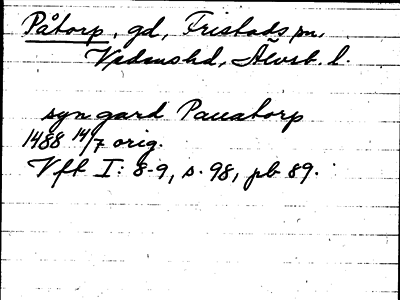 Påtorp, gd, Fristads sn,
Vedens hd, Älvsb. l.
syn gard Pauatorp
1488 14/7 orig.
Vft I: 8-9, s. 98, pb 89.